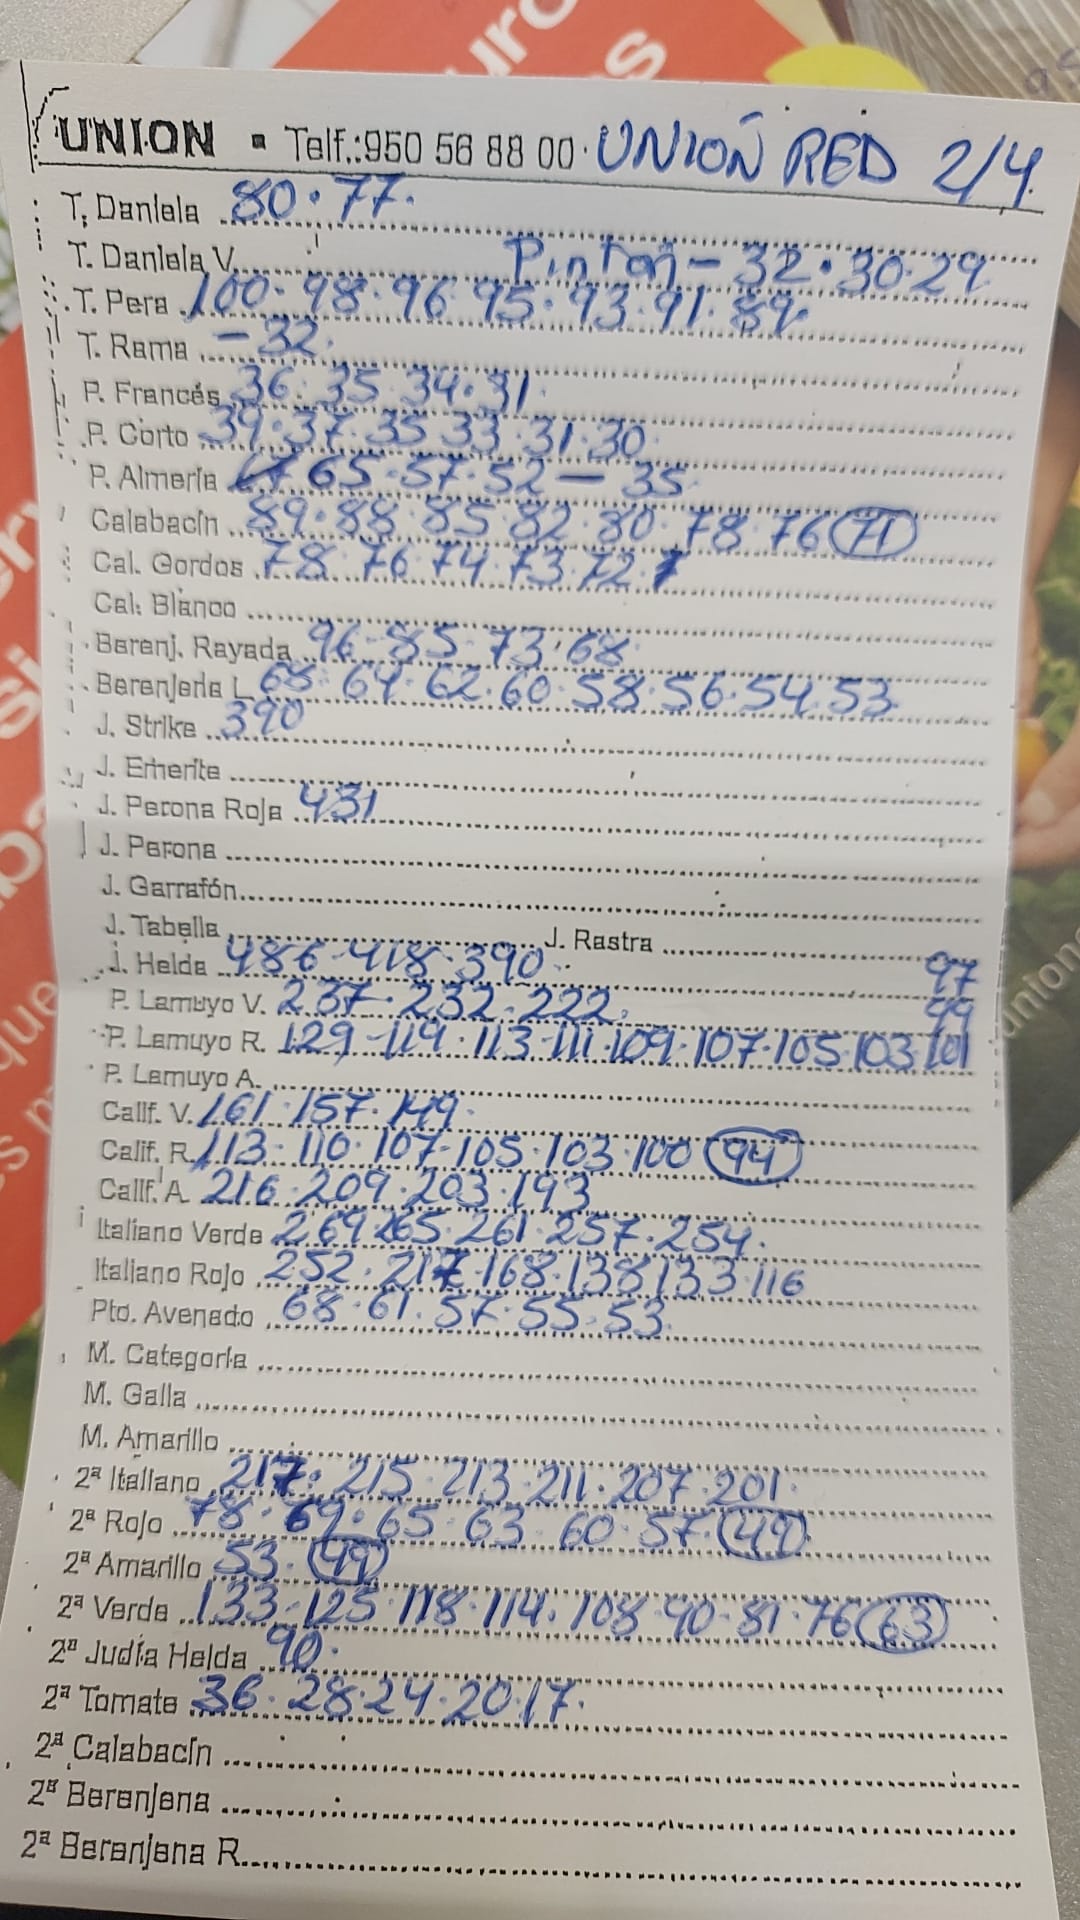 UNION ▪ Telf.:950 56 88 00 · UNIOÑ RED 2/4.
T. Daniela 80 · 77.
T. Daniela V. Pintoñ - 32 · 30 · 29
T. Pera 100 · 98 · 96 95 · 93 · 91 · 89.
T. Rama - 32.
P. Francés 36 · 35 34 · 31.
P. Corto 39 · 37 · 35 33 · 31 · 30.
P. Almería 65 · 57 · 52 — 35.
Calabacín 89 · 88 · 85 82 · 80 · 78 · 76 71
Cal. Gordos 78 · 76 74 · 73 · 72 ·
Cal. Blanco
Barenj. Rayada 96 - 85 - 73 · 68
Berenjena L 68 · 64 · 62 · 60 · 58 · 56 · 54 · 53
J. Strike 390
J. Emerite
J. Perona Roja 431
J. Perona
J. Garrafón
J. Tabella J. Rastra
J. Helda 486 - 418 · 390 · 97
P. Lamuyo V. 237 · 232 · 222. 99
P. Lamuyo R. 129 - 119 · 113 - 111 · 109 · 107 · 105 · 103 101
P. Lamuyo A.
Calif. V. 161 · 157 · 149 ·
Calif. R. 113 - 110 · 107 · 105 · 103 · 100 94
Calif. A. 216 · 209 · 203 · 193
Italiano Verde 269 265 · 261 · 257 · 254.
Italiano Rojo 252 · 217 · 168 · 138 133 · 116
Pto. Avenado 68 · 61 · 57 · 55 · 53.
M. Categoría
M. Galla
M. Amarillo
2ª Italiano 217 · 215 · 213 · 211 · 207 · 201 ·
2ª Rojo 78 · 69 · 65 · 63 · 60 · 57 · 49
2ª Amarillo 53 · 49
2ª Verde 133 - 125 · 118 · 114 · 108 · 90 · 81 · 76 63
2ª Judía Helda 90.
2ª Tomate 36 · 28 · 24 · 20 · 17.
2ª Calabacín
2ª Berenjena
2ª Berenjena R.